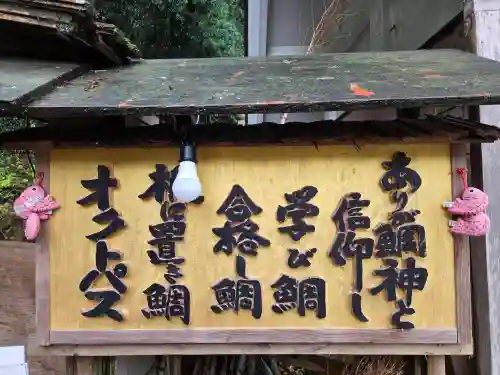 ありが鯛神と
信仰し
学び鯛
合格し鯛
机に置き鯛
オクトパス